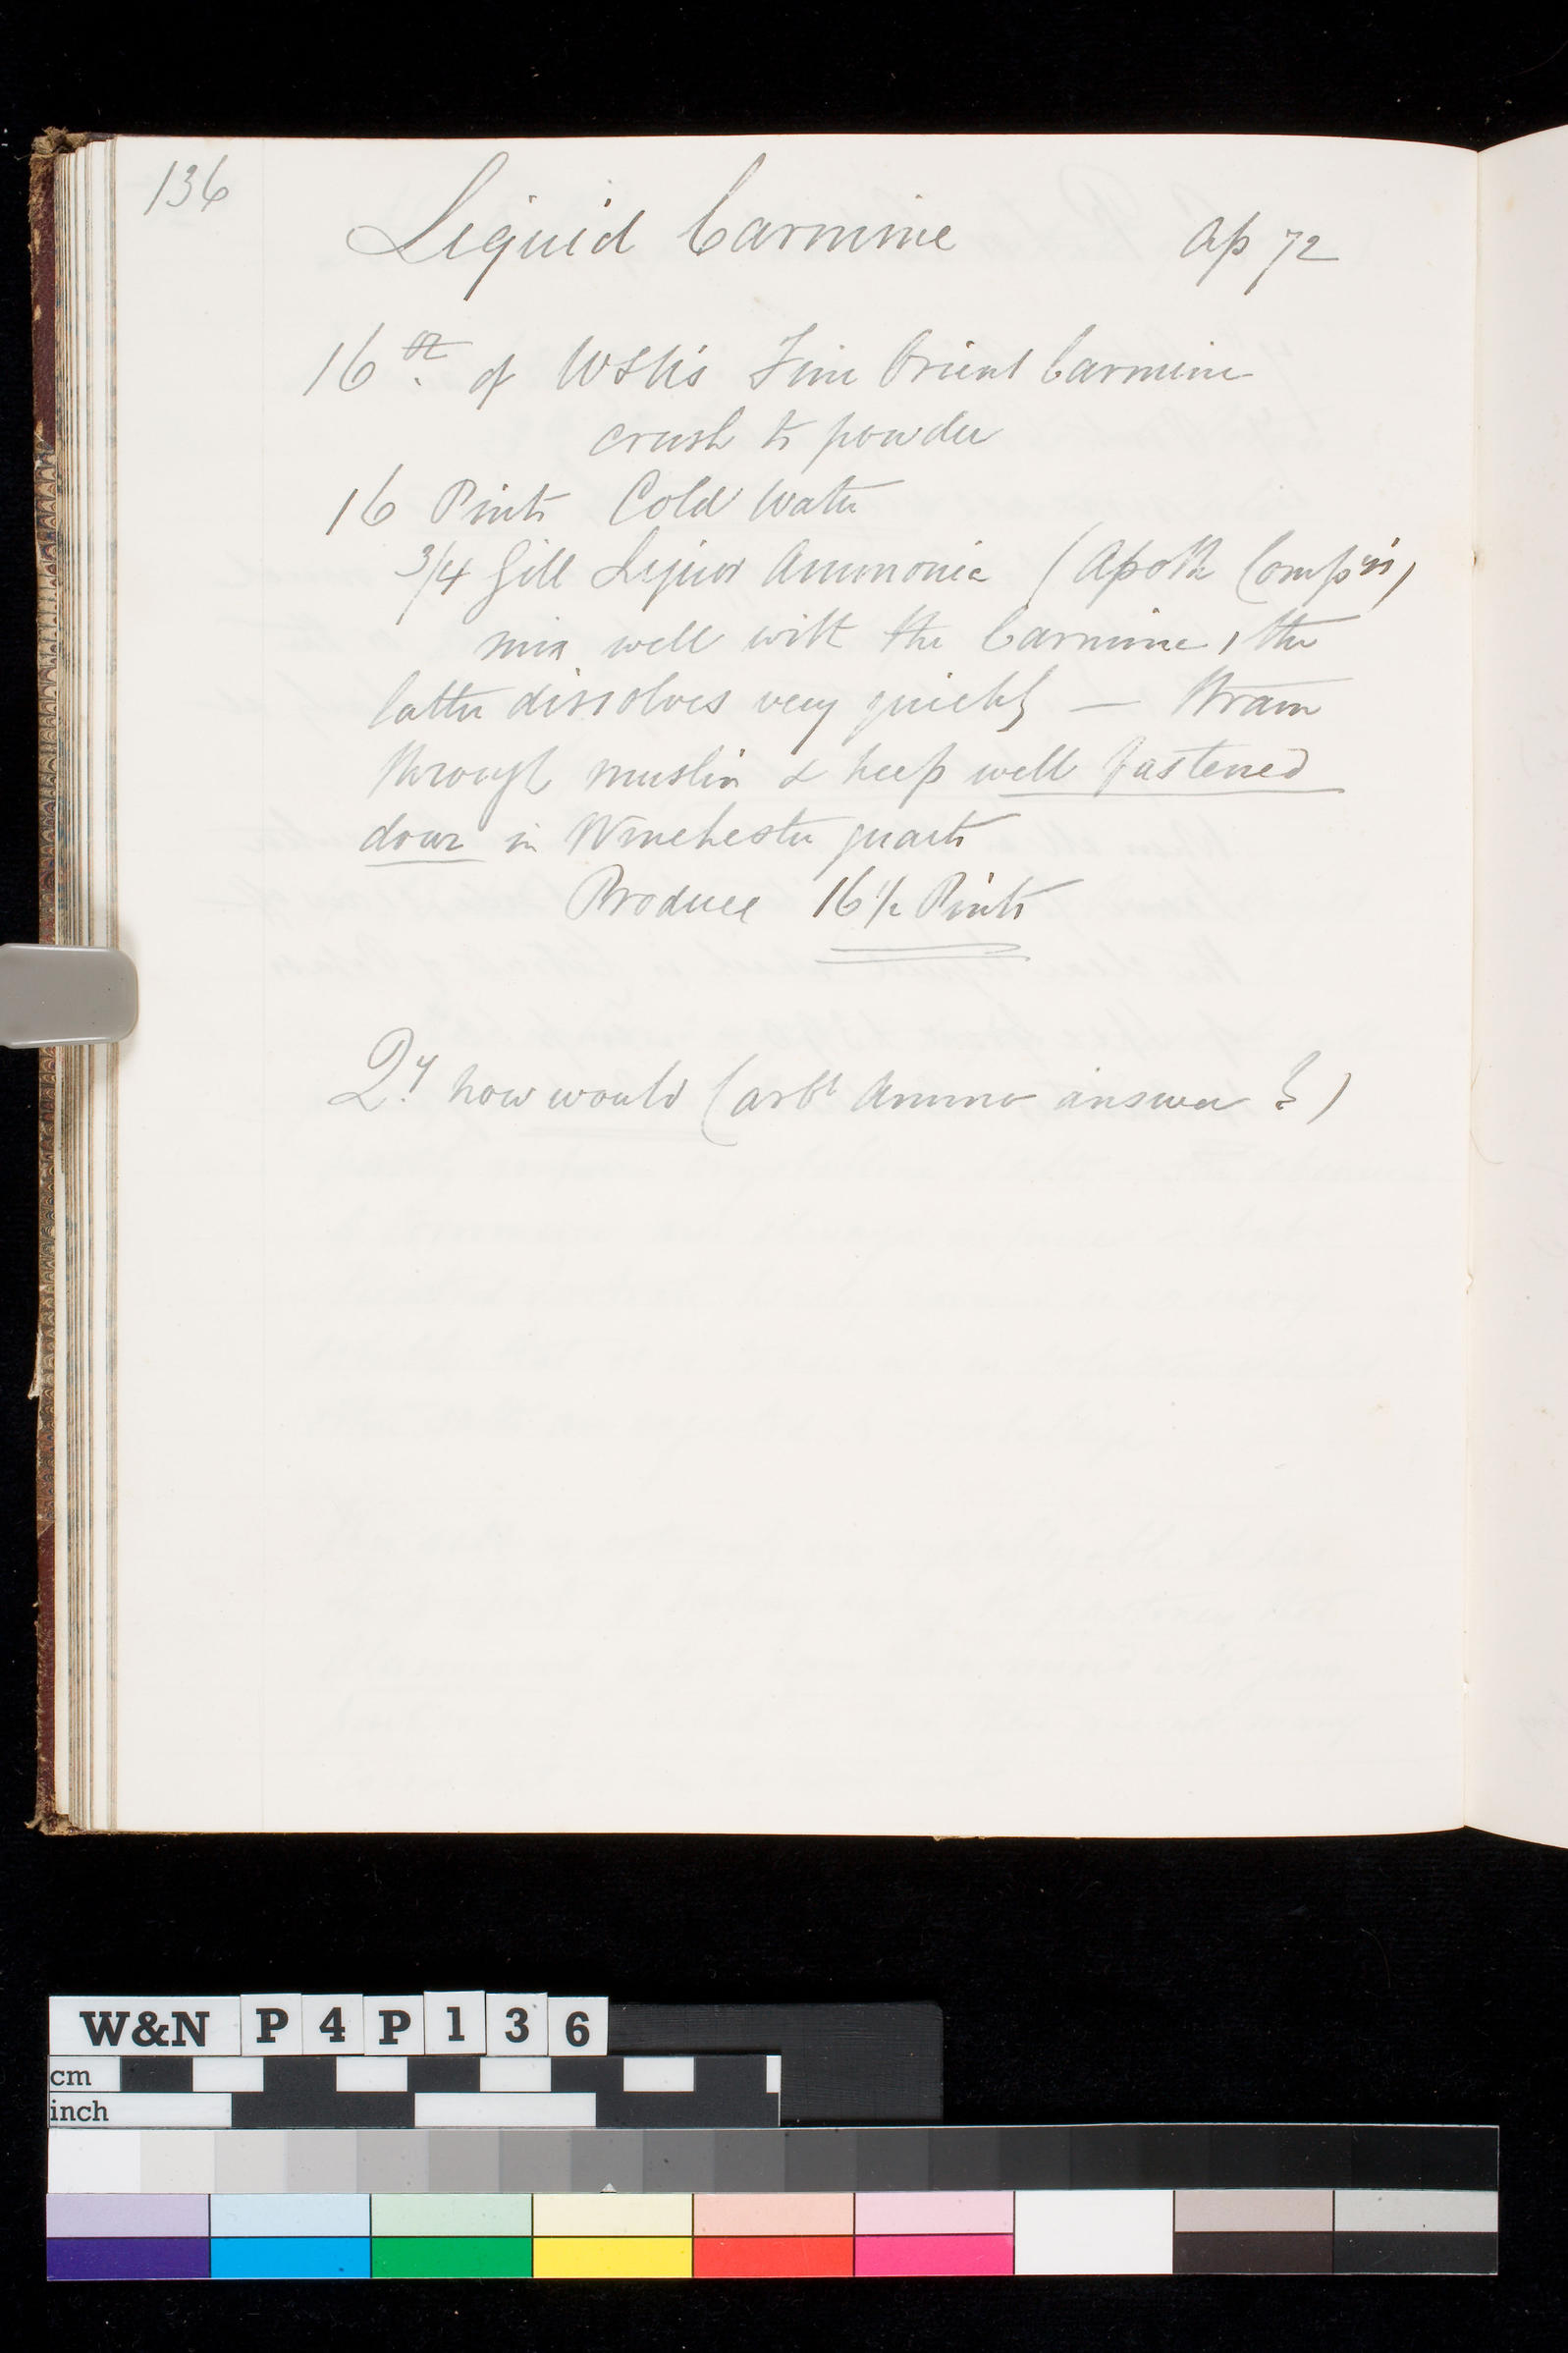 136
Liquid Carmine Ap 72
16 oz. of Fine Orient Carmine
crush to powder
16 Pints Cold Water
3/4 Gill Liquor Ammonia (Apoth Comp'ys)
mix well with the Carmine, the
latter dissolves very quickly — Strain
through muslin & keep well fastened
down in Winchester quarts
Produce 16 1/2 Pints
Qy. how would (arbt Ammo answer ?)
W&N P4P136
cm
inch